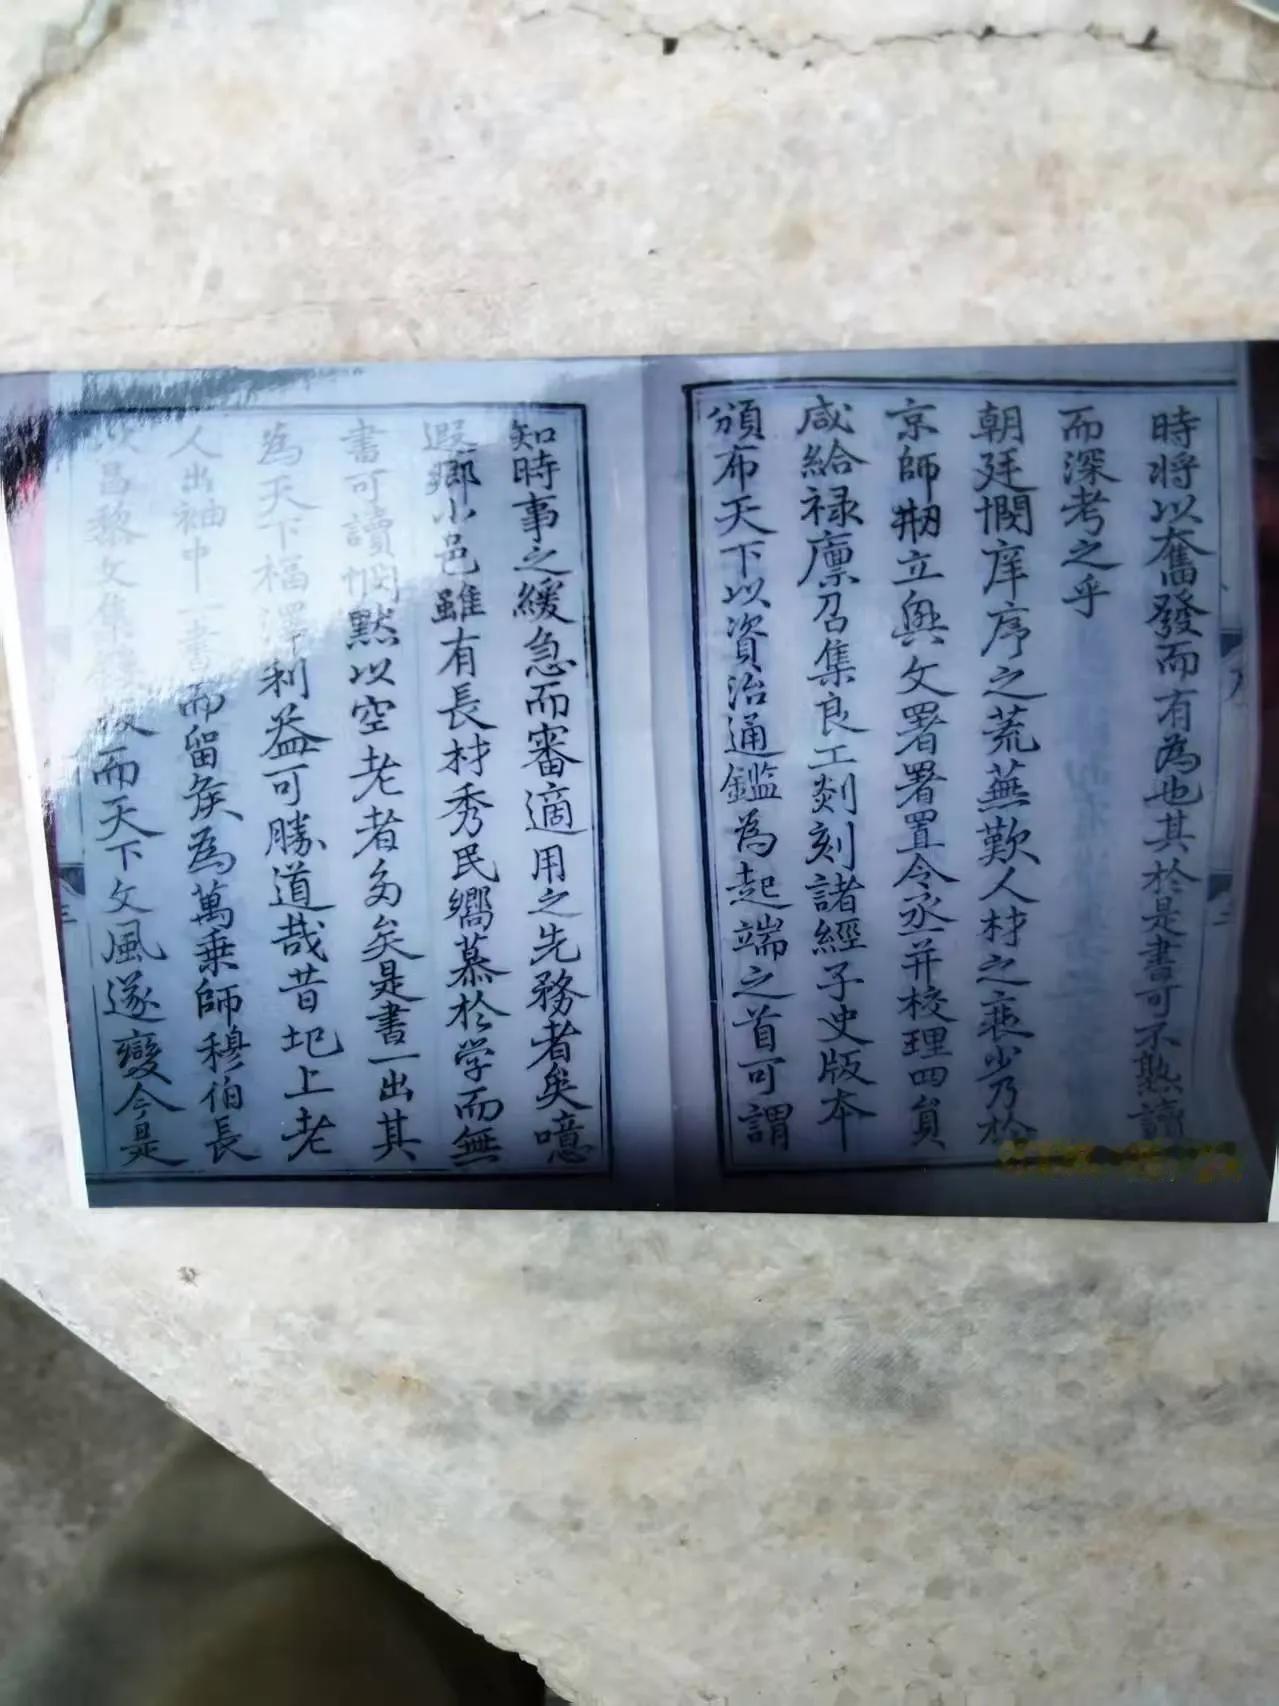 時將以奮發而有為也其於是書可不熟讀
而深考之乎
朝廷憫庠序之荒蕪歎人材之衰少乃於
京師刱立興文署署置令丞并校理四員
咸給祿廩召集良工剡刻諸經子史版本
頒布天下以資治通鑑為起端之首可謂
知時事之緩急而審適用之先務者矣噫
遐鄉小邑雖有長材秀民嚮慕於学而無
書可讀憫默以空老者多矣是書一出其
為天下福澤利益可勝道哉昔圯上老
人出袖中一書而留矦為萬乗師穆伯長
昌黎文集而天下文風遂變今是